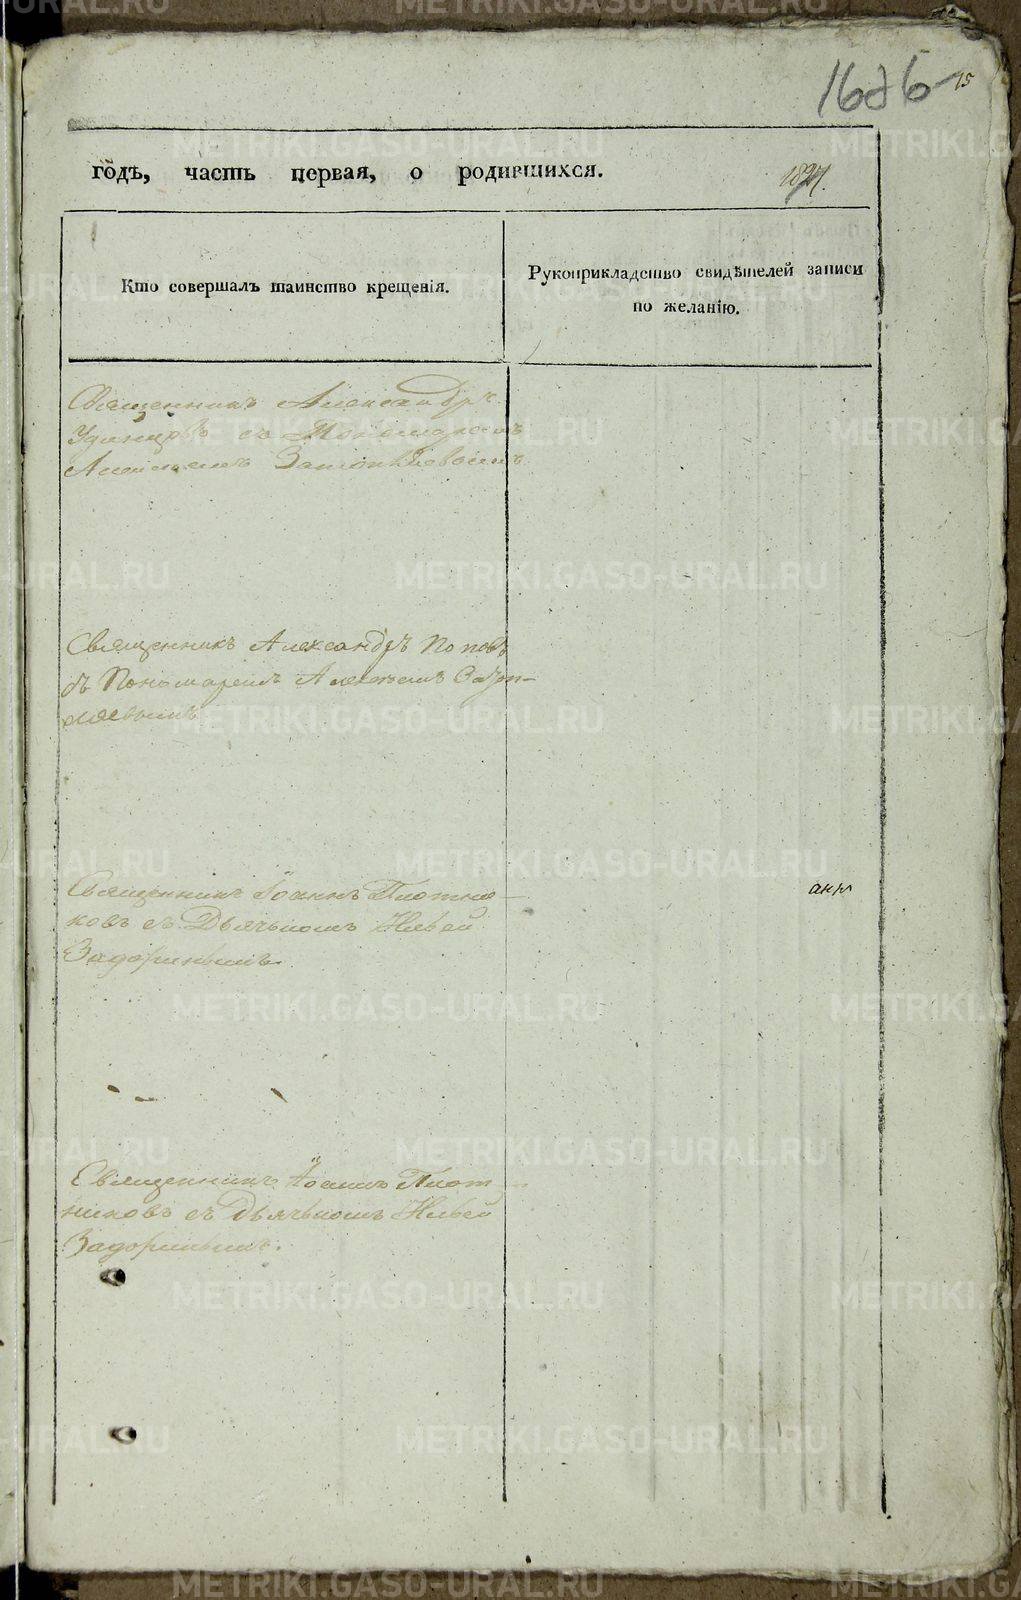 15
годъ, часть первая, о родившихся.
Кто совершалъ таинство крещенія.
Рукоприкладство свидѣтелей записи
по желанію.
Священникъ Александръ
Удинцовъ съ Пономаремъ
Алексѣемъ
Священникъ Александръ Поповъ
съ Пономаремъ Алексѣемъ
Священникъ Іоаннъ Плотни-
ковъ съ Дьячькомъ Ильей
Задоринымъ.
Священникъ Іоаннъ Плот-
никовъ съ Дьячькомъ Ильей
Задоринымъ.
METRIKI.GASO-URAL.RU